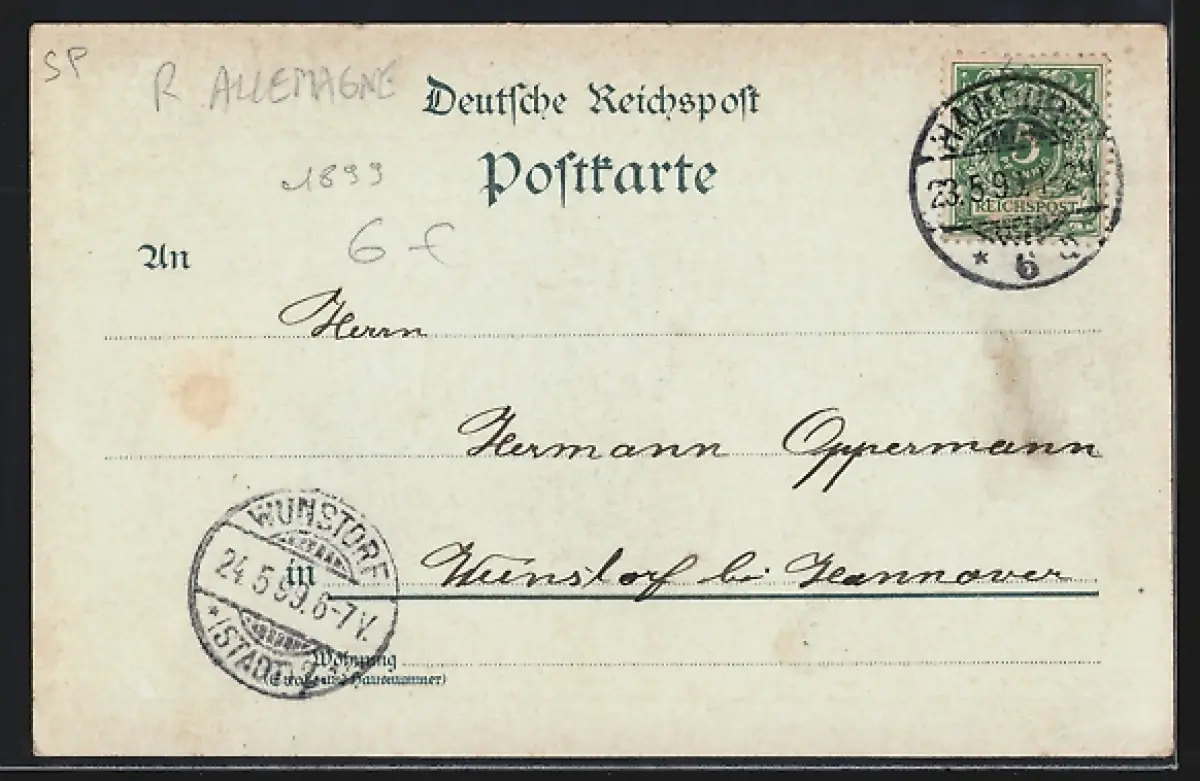 SP
R ALLEMAGNE
Deutſche Reichspoſt
Poſtkarte
1899
6 €
An
HAMBURG
5
23.5.99. 1-2N
REICHSPOST
* 6
Herrn
Hermann Oppermann
in Wunstorf bei Hannover
WUNSTORF
24.5.99.6-7V.
*(STADT) 2
Wohnung
(Straße und Hausnummer)